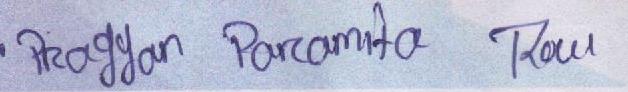 Pragyan Parcamita Rout